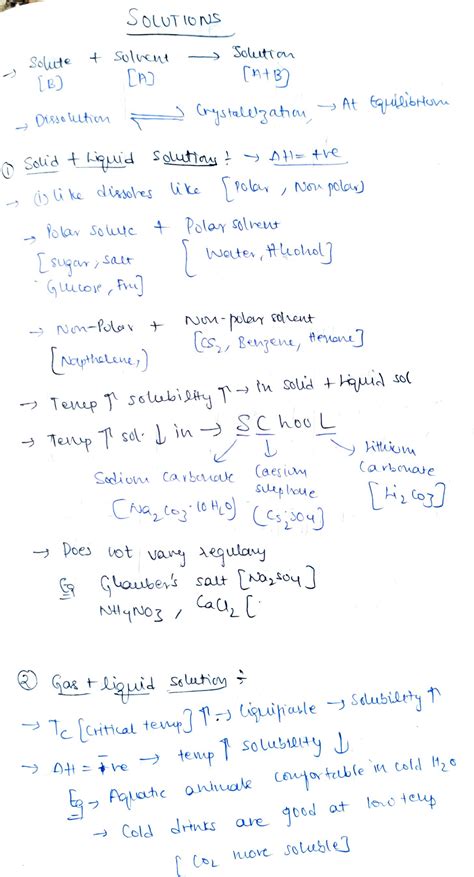 SOLUTIONS
→ Solute + Solvent → Solution
[B] [A] [A+B]
→ Dissolution ⇌ Crystalelzation, → At Equilibrium
① Solid + Liquid Solution ÷ → ΔH = +ve
→ (i) like dissolves like [Polar, Non polar]
→ Polar solute + Polar solvent
[Sugar, salt [Water, Alcohol]
Glucose, Fru]
→ Non-Polar + Non-polar solvent
[Napthelene,) [CS₂, Benzene, Hexane]
→ Temp ↑ solubility ↑ → in solid + liquid sol
→ Temp ↑ sol. ↓ in → SChooL
Sodium Carbonate Caesium Lithium
sulphate Carbonate
[Na₂CO₃·10H₂O) (Cs₂SO₄) [Li₂CO₃]
→ Does not vary regulary
Eg Glauber's salt [Na₂SO₄]
NH₄NO₃, CaCl₂ [
② Gas + liquid solution ÷
→ Tc [Critical temp] ↑ → liquifiable → Solubility ↑
→ ΔH = → temp ↑ solubility ↓
Eg → Aquatic animals comfortable in cold H₂O
→ Cold drinks are good at low temp
[CO₂ more soluble]